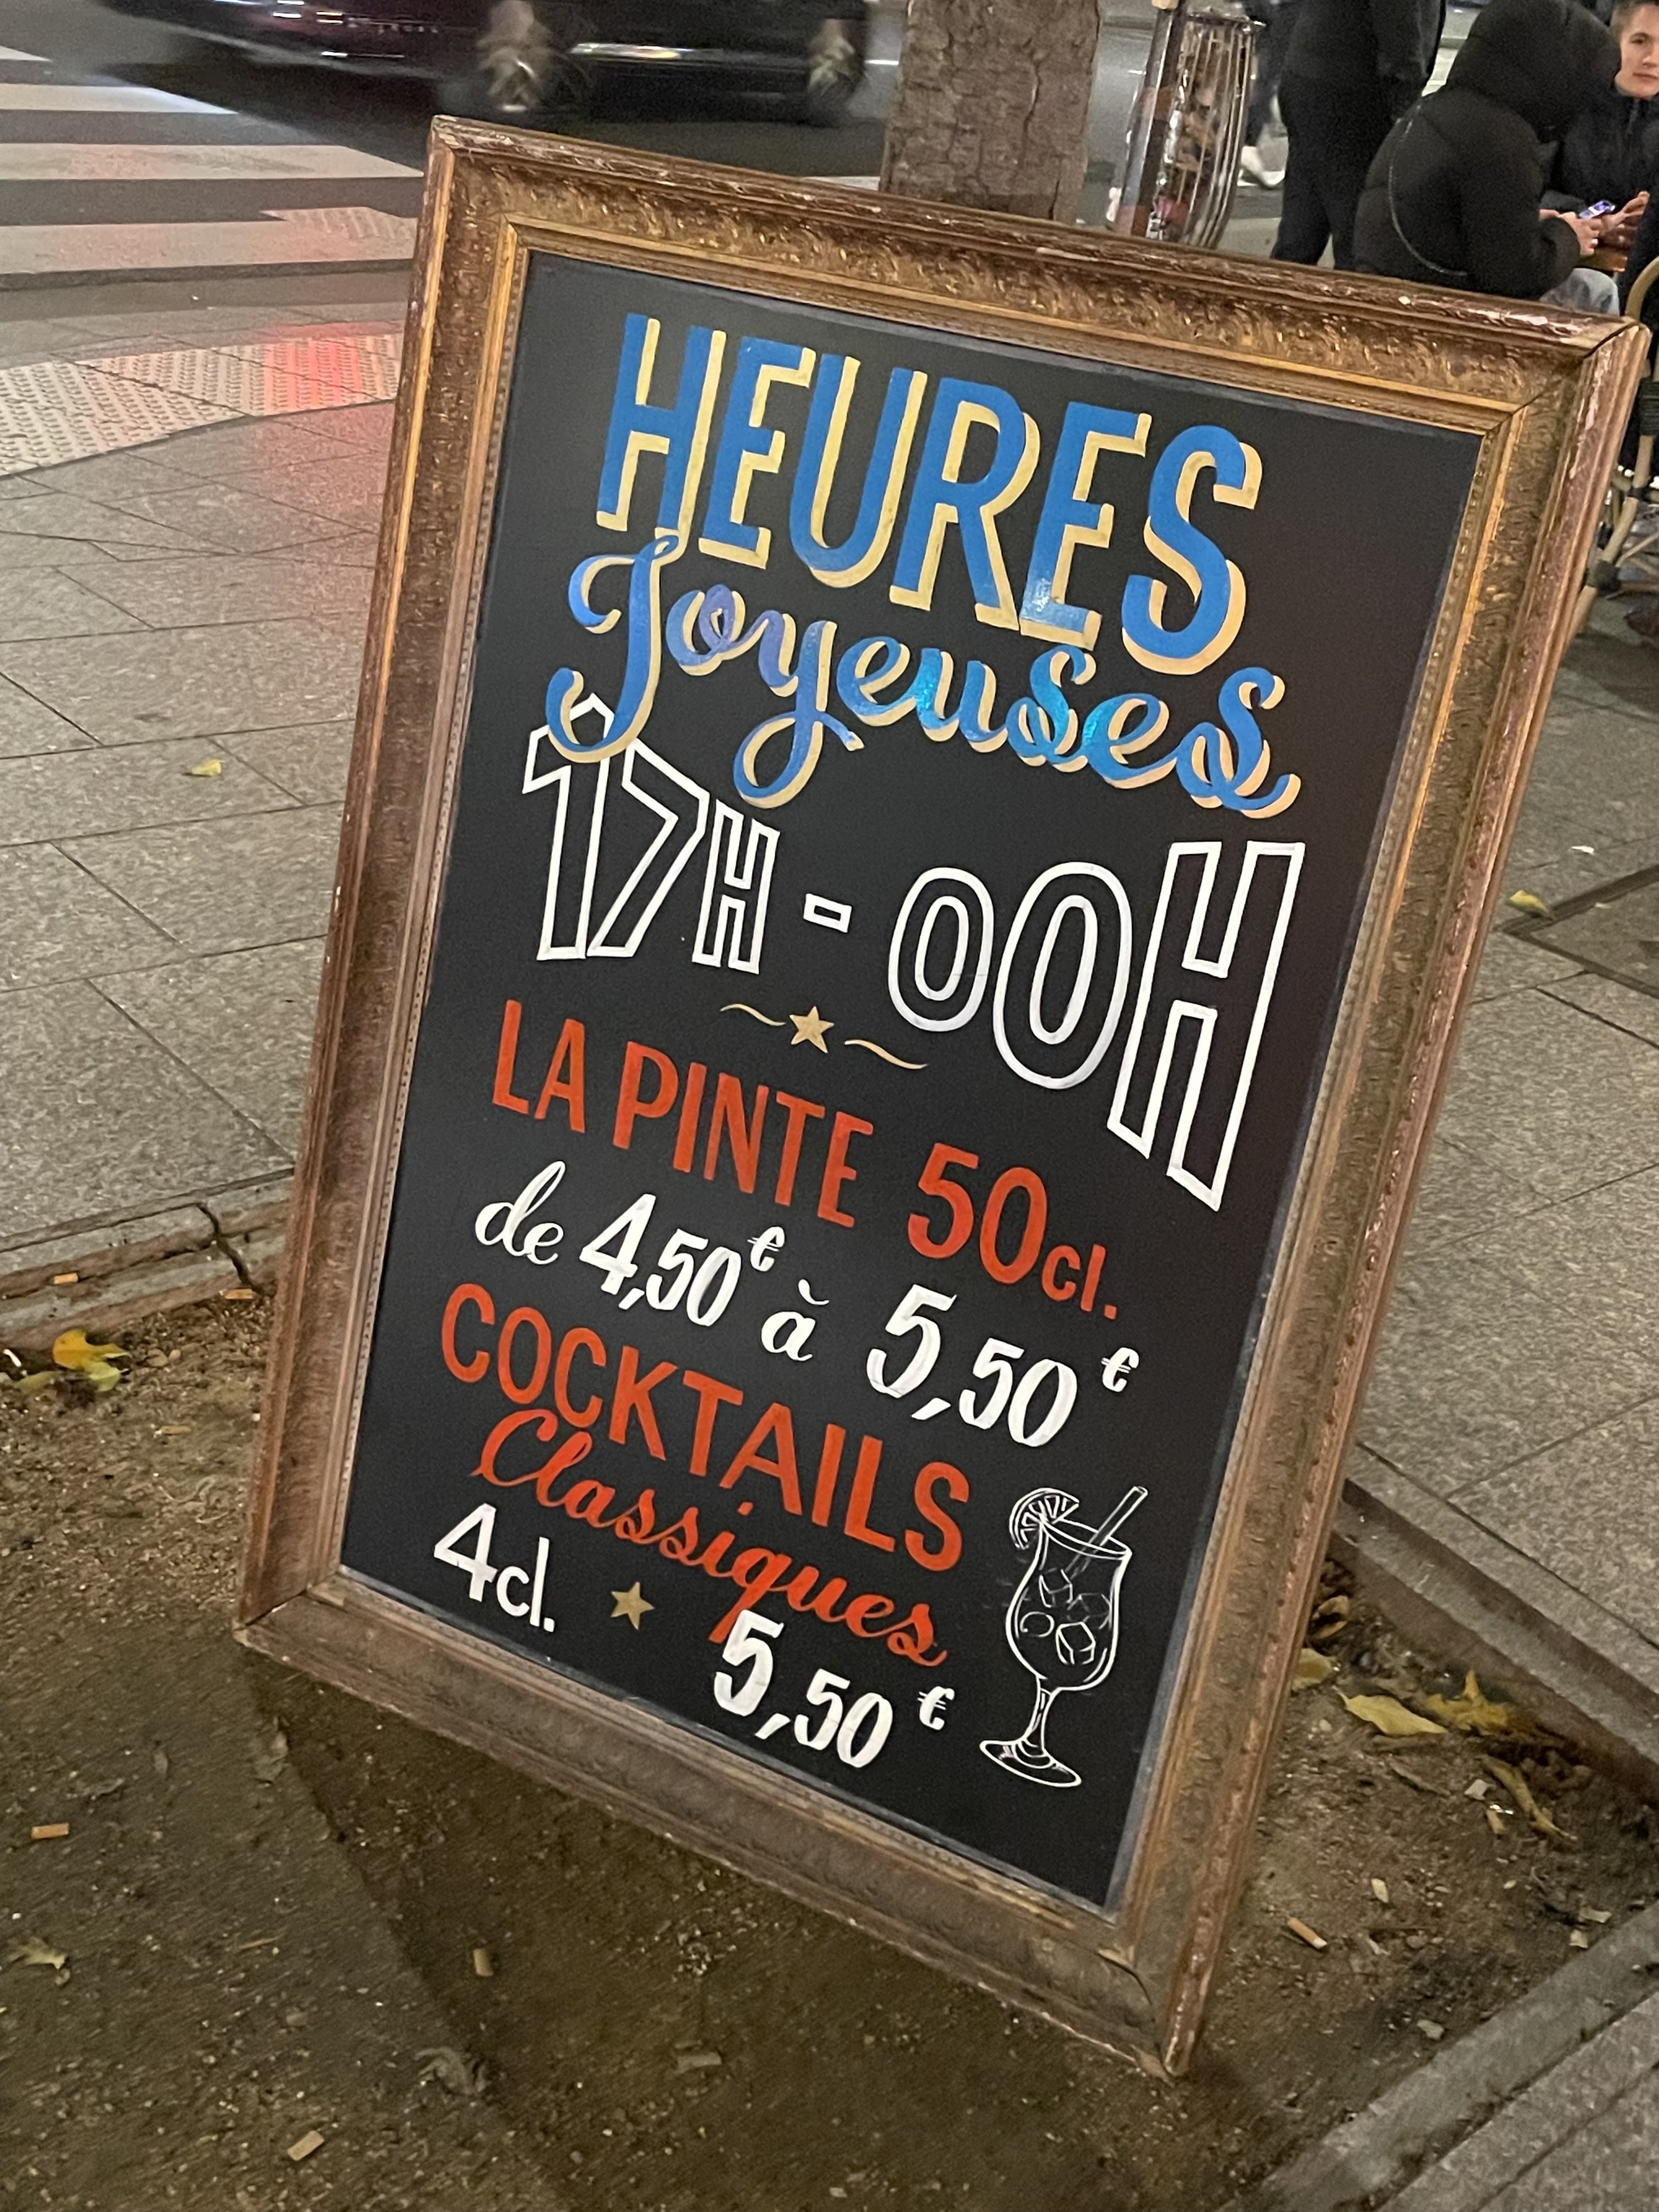 HEURES
Joyeuses
17H - 00H
LA PINTE 50cl.
de 4,50€ à 5,50€
COCKTAILS
Classiques
4cl. 5,50€